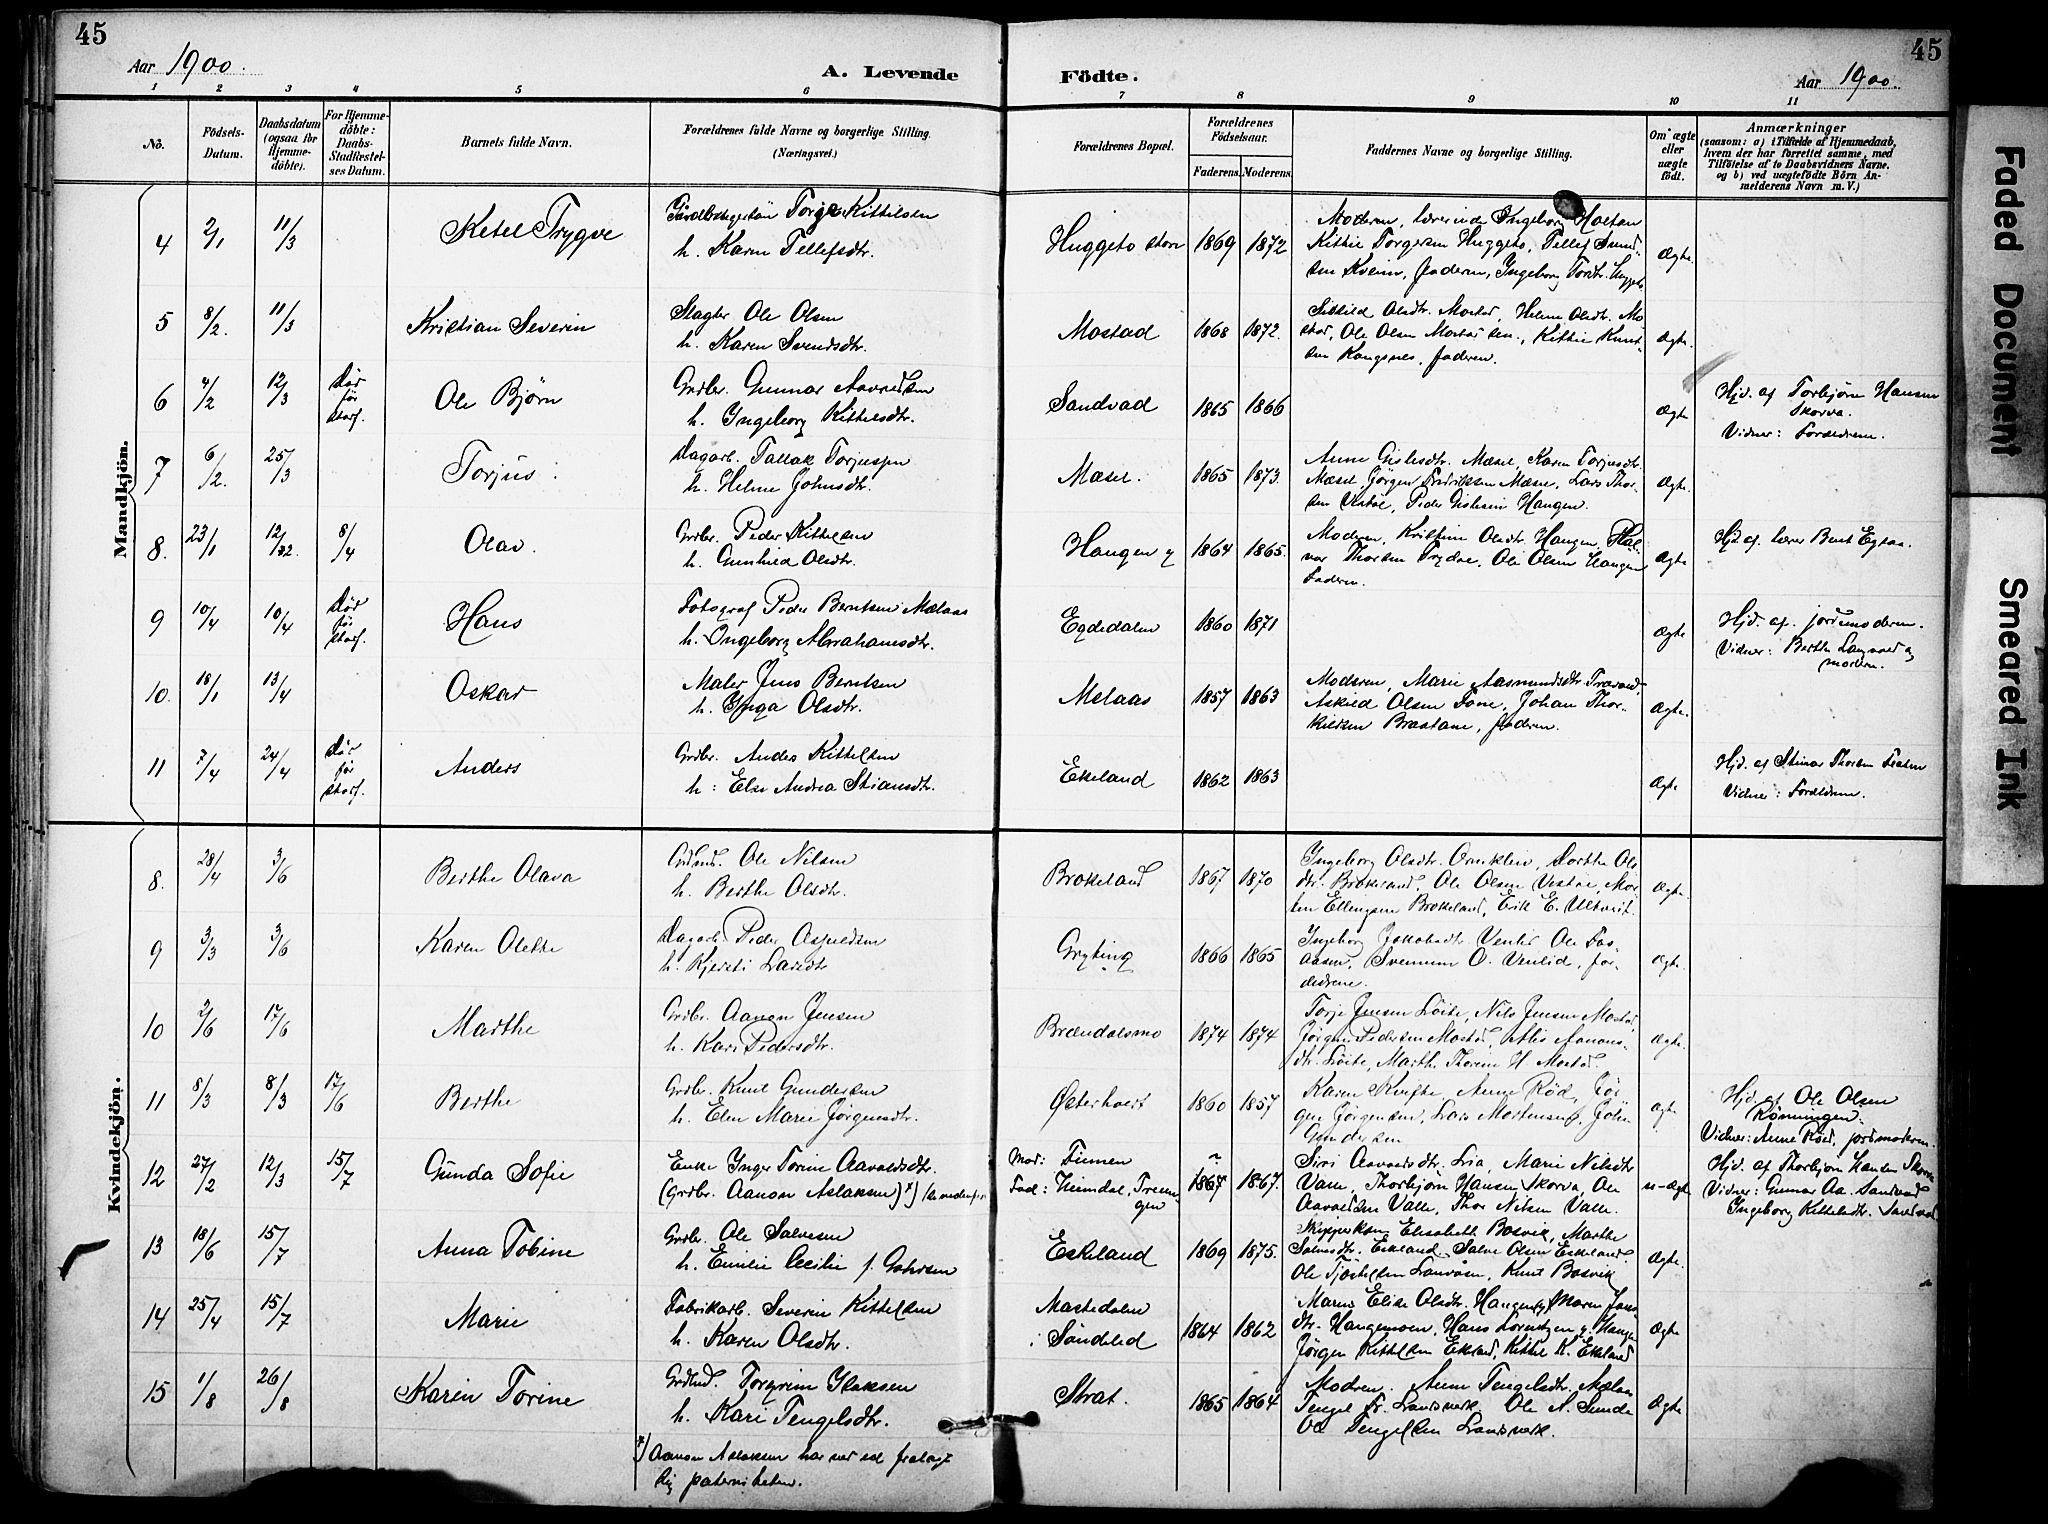 45
Aar 1900.
A. Levende
Födte.
Aar 1900.
45
1 2 3 4 5 6 7 8 9 10 11
No.
Födsels-Datum.
Daabsdatum (ogsaa for Hjemme-döbte).
For Hjemme-döbte: Daabs-Stadfæstel-ses Datum.
Barnets fulde Navn.
Forældrenes fulde Navne og borgerlige Stilling. (Næringsvei.)
Forældrenes Bopæl.
Forældrenes Födselsaar.
Faderens. Moderens.
Faddernes Navne og borgerlige Stilling.
Om ægte eller uægte födt.
Anmærkninger
(saasom: a) i Tilfælde af Hjemmedaab, hvem der har forrettet samme, med Tilföielse af to Daabsvidners Navne. og b) ved uægtefödte Börn An-melderens Navn m. V.)
Mandkjön.
4 2/1 11/3 Ketel Trygve
Torje Kittilsen
h. Karen Tellefsdtr.
Huggeto 1869 1872
Moderen, lærerinde Ingeborg Holtan
Kittil Torgersen Huggeto, Tellef
faderen, Ingeborg
Ægte.
5 8/2. 11/3 Kristian Severin
Slagter Ole Olsen
h. Karen Svendsdtr.
Mostad 1868 1872.
Olsdtr. Mostad, Helene Olsdtr. Mo
stad, Ole Olsen Mostad sen., Kittil Knut-
sen faderen.
Ægte.
6 4/2 12/3 Død før stadf.
Ole Bjørn
Grdbr. Gunnar Aavaldsen
h. Ingeborg Kittelsdtr.
Sandvad 1865 1866
Ægte
Hjd. af Torbjørn Hansen
Skorva.
Vidner: Forældrene.
7 6/2. 25/3 Torjus
Dagarb. Tallak Torjussen
h. Helene Johnsdtr.
Mæsel. 1865 1873.
Anne Gislesdtr. Mæsel, Karen Torjusdtr.
Mæsel, Jørgen Fredriksen Mæsel, Lars Thor-
sen Vestøl, Peder Haugen.
Ægte.
8. 23/1 12/2 8/4 Olav.
Grdbr. Peder Kittelsen
h. Gunhild Olsdtr.
Haugen y 1864 1865.
Moderen, Kristine Olsdtr. Haugen, Hal-
vor Thorsen Trydal, Ole Olsen Haugen
Faderen.
Ægte
Hjd. af. lærer Bent Egsaa.
9 10/4 10/4 Død før stadf.
Hans
Fotograf Peder Berntsen Mælaas
h. Ingeborg Abrahamsdtr.
Egdedalen 1860 1871
Ægte
Hjd. af. jordmoderen.
Vidner: Berthe og
moderen.
10. 18/1 13/4 Oskar
Maler Jens Berntsen
h. Inga Olsdtr.
Melaas 1857 1863
Moderen, Marie Aasmundsdtr. Trævand
Askild Olsen Tone, Johan Thor-
kildsen faderen.
Ægte.
11 7/4 24/4 Død før stadf.
Anders
Grdbr. Anders Kittelsen
h: Else Andrea Stiansdtr.
Ekeland 1862 1863
Ægte
Hjd. af Steinar Thorsen
Vidner: Forældrene.
Kvindekjön.
8. 28/4 3/6 Berthe Olava
Ole Nilsen
h. Berthe Olsdtr.
Brokeland 1867 1870
Ingeborg Olsdtr. Dorthe Ols
dtr. Brokeland, Ole Olsen Vestøl, Mor
ten Ellingsen Brokeland, Erik E. Ulltveit.
Ægte.
9 3/3 3/6 Karen Olette
Dagarb. Peder
h. Kjersti Larsdtr
Gryting 1866 1865
Ingeborg Jakobsdtr. Venlid Ole
Svennum O. Venlid, for-
ældrene.
Ægte.
10 2/6 17/6 Marthe
Grdbr. Aanon Jensen
h. Kari Pedersdtr.
Brændalsmo 1874 1874
Torje Jensen Løite, Nils Jensen Mostad,
Jørgen Pedersen Mostad, Aanons-
dtr. Løite, Marthe Thorine H. Mostad.
Ægte.
11 8/3 8/3 17/6 Berthe
Grdbr. Knut Gundersen
h. Elen Marie Jørgensdtr.
Østerholt 1860 1857
Karen Anne Røed, Jør
gen Jørgensen, Lars Mortensen, John
Gundersen
Ægte.
Hjd. af Ole Olsen
Rønningen.
Vidner: Anne Røed, jordmoderen.
12 27/2 12/3 15/7 Gunda Sofie
Enke Inger Torine Aavaldsdtr.
(Grdbr. Aanon Aslaksen)*)
Mod: Finmen
Fad: Heimdal, Treun-
gen
1867 1867.
Siri Aavaldsdtr. Lia, Marie Nilsdtr
Valle, Thorbjørn Hansen Skorva, Ole
Aavaldsen Valle, Thor Nilsen Valle.
u-ægte
Hjd. af Thorbjørn Hansen Skorva
Vidner: Gunnar Aa. Sandvad
Ingeborg Kittelsdtr. Sandvad
13 18/6 15/7 Anna Tobine
Grdbr. Ole Salvesen
h. Emilie Cecilie f.
Eskeland 1869 1875.
Elisabeth Bosvik, Marthe
Salvesdtr. Eskeland, Salve Olsen Eskeland
Ole Tjøstelsen Knut Bosvik
Ægte.
14 25/4 15/7 Marie
Fabrikarb. Severin Kittelsen
h. Karen Olsdtr.
Mastedalen
i Søndeled 1864 1862
Maren Elise Olsdtr. Haugen, Maren
dtr. Haugemoen, Hans Lorentzen
Jørgen Kittelsen Ekeland, Kittil K. Ekeland
Ægte
15 1/8 26/8 Karen Torine
Torgrim
h. Kari Tengelsdtr.
Strat. 1865 1864
Modren. Anne Tengelsdtr.
Tengel Landsverk. Ole A. Sunde
Ole Tengelsen Landsverk.
Ægte.
*) Aanon Aslaksen har ved ed fralagt
sig paterniteten.
Faded Document
Smeared Ink